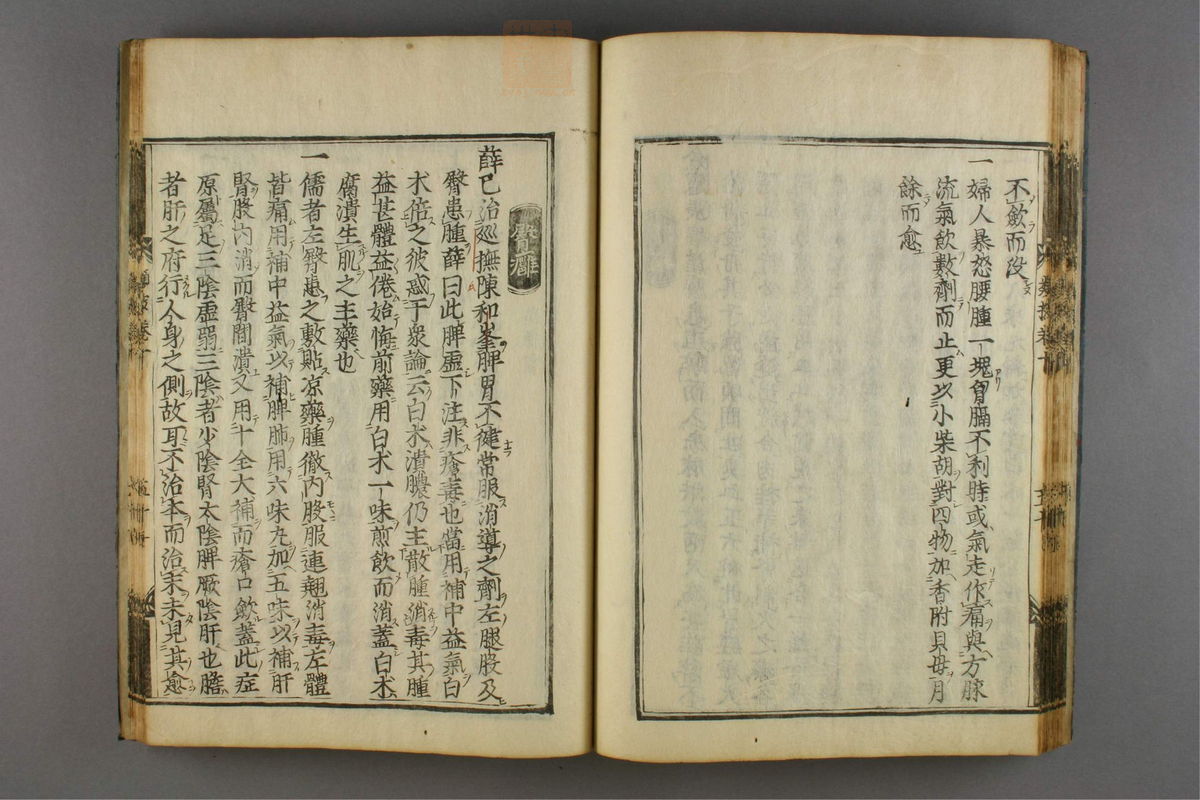 不斂而没
一婦人暴怒腰腫一塊胷膈不利時或氣走作痛與方脉
流氣飲數劑而止更以小柴胡對四物加香附貝毋月
餘而愈
臀癰
薛已治廵撫陳和峯脾胃不健常服消導之劑左腿股及
臀患腫薛曰此脾虚下注非瘡毒也當用補中益氣白
术倍之彼惑于衆論云白术潰膿仍主散腫消毒其腫
益甚體益倦始悔前藥用白术一味煎飲而消蓋白术
腐潰生肌之主藥也
一儒者左臀患之敷貼凉藥腫徹内股服連翹消毒左體
皆痛用補中益氣以補脾肺用六味丸加五味以補肝
腎股内消而臀間潰又用十全大補而瘡口斂蓋此症
原屬足三陰虚弱三陰者少陰腎太陰脾厥陰肝也膽
者肝之府行人身之側故耳不治本而治末未見其愈